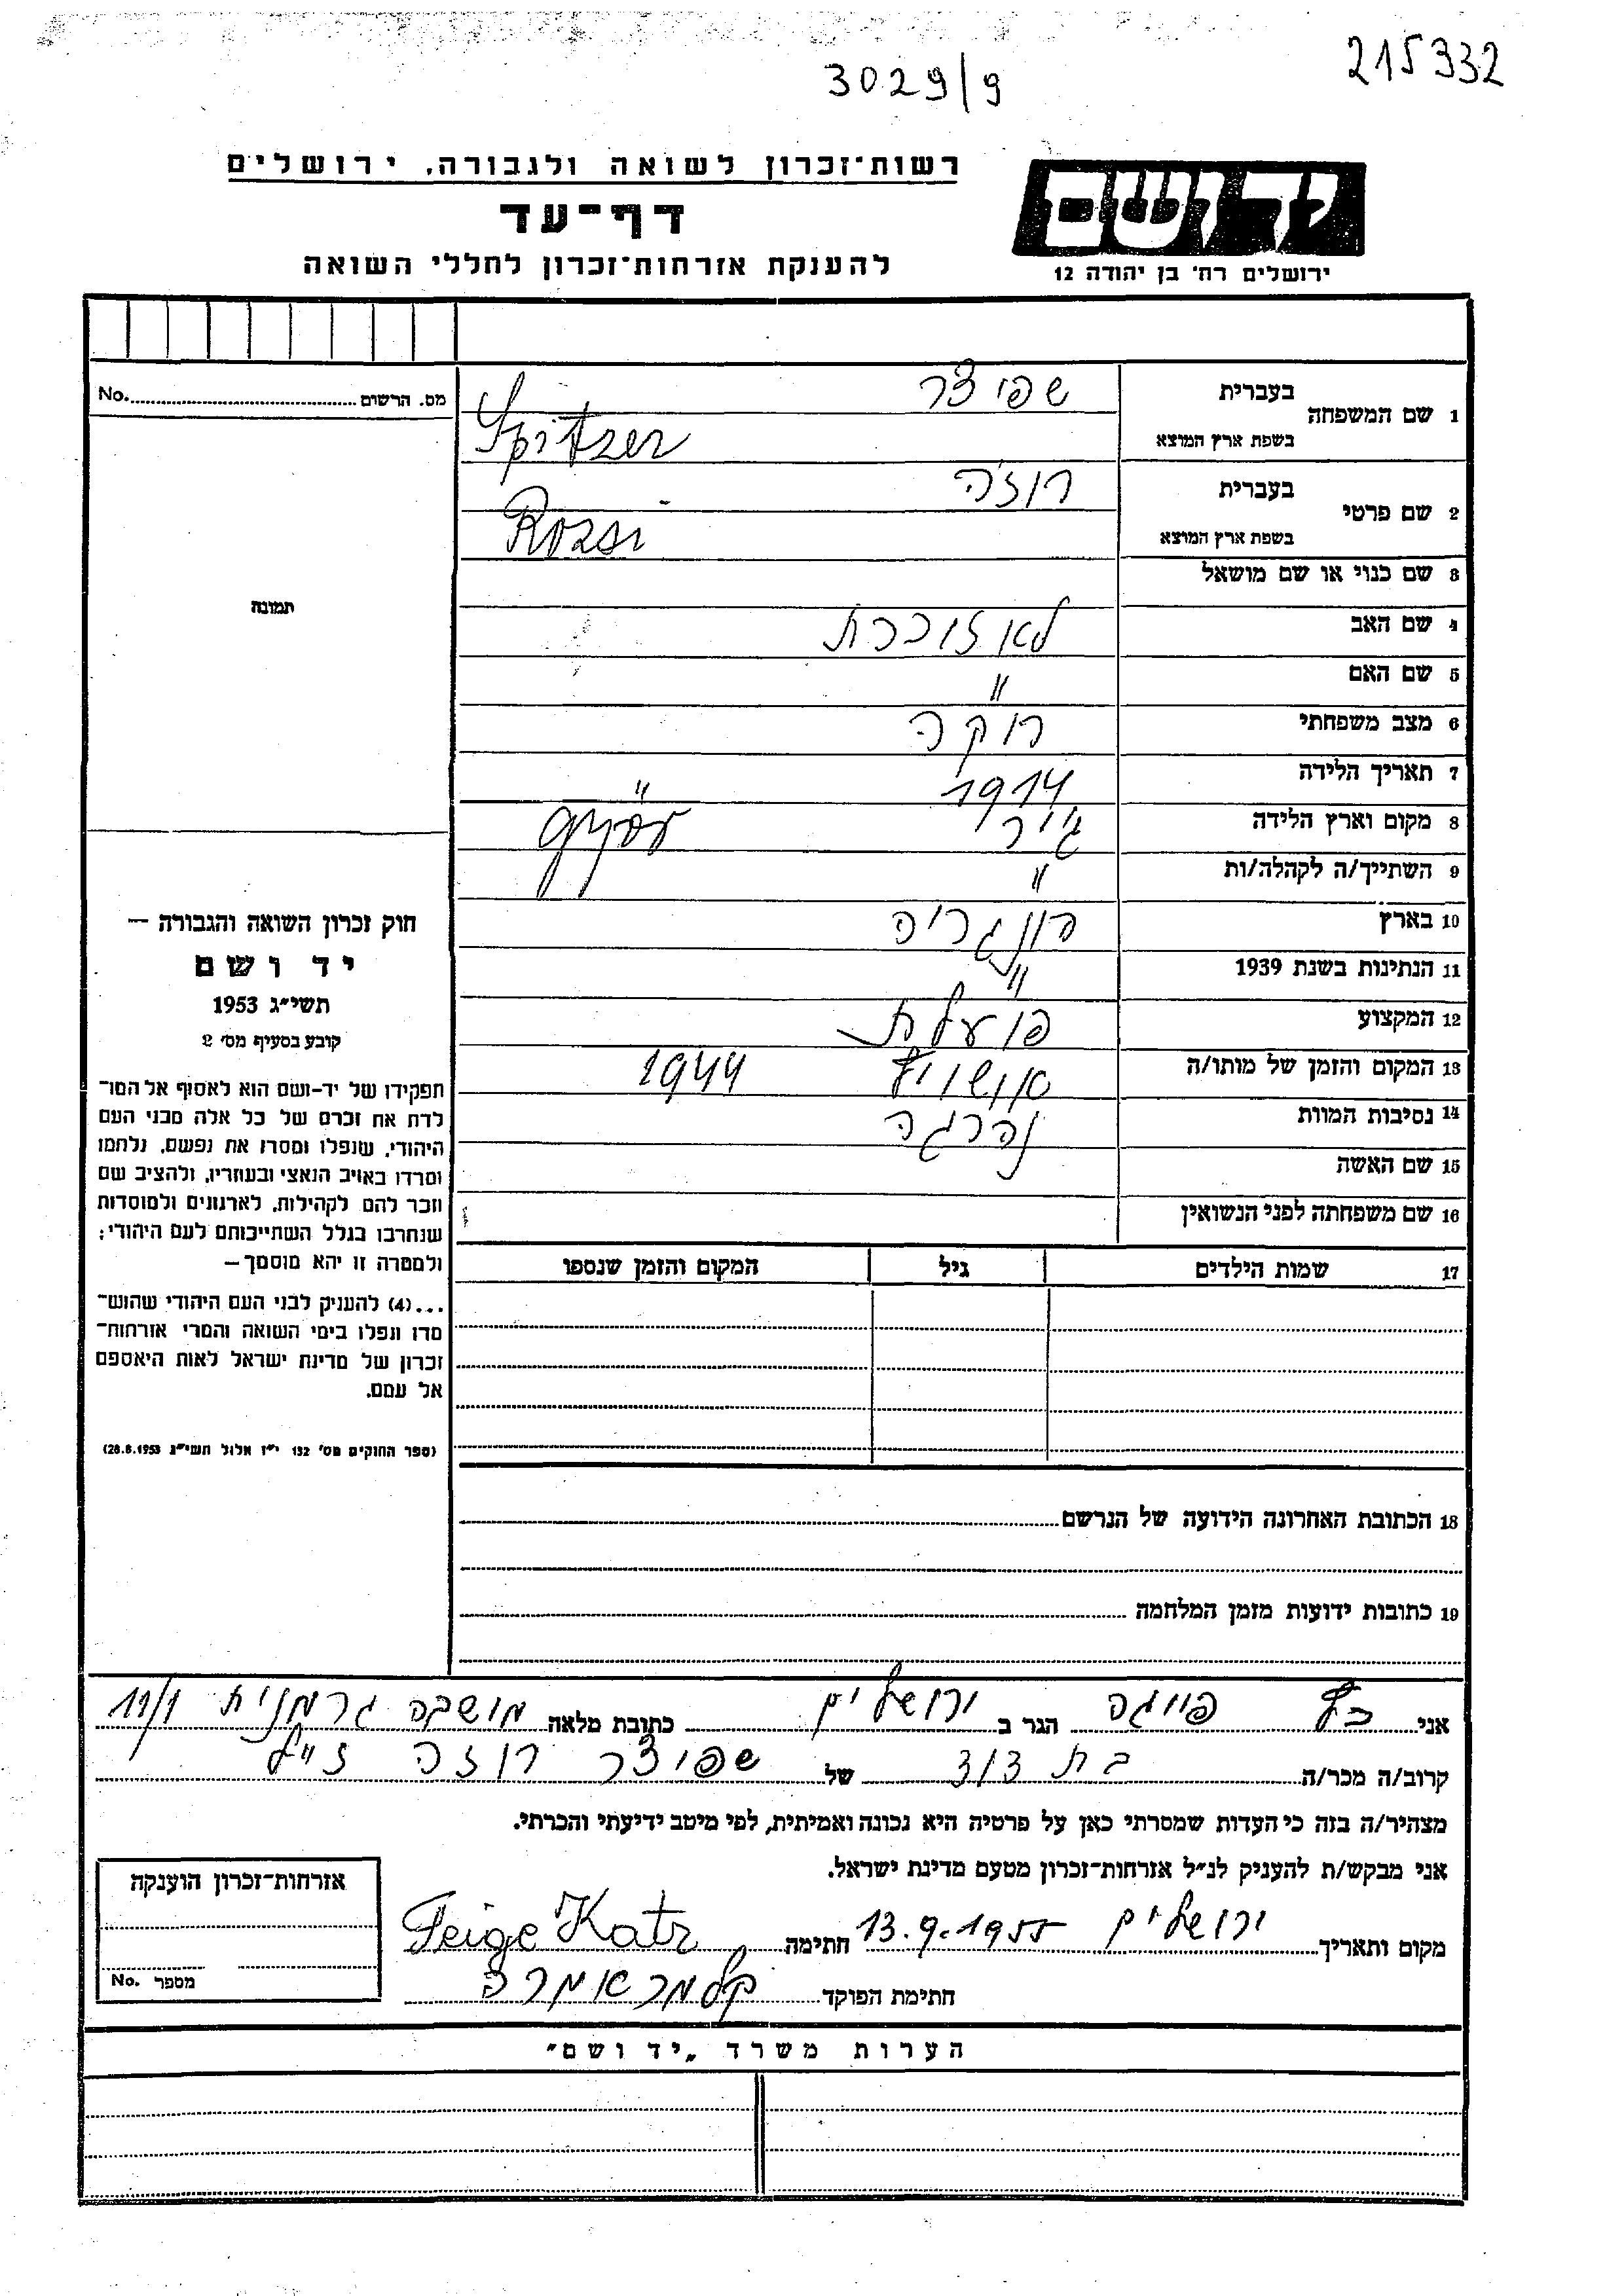 215332
3029/9
רשות־זכרון לשואה ולגבורה, ירושלים
דף־עד
להענקת אזרחות־זכרון לחללי השואה
יד ושם
ירושלים רח' בן יהודה 12
מס. הרשום No.
תמונה
1 שם המשפחה
בעברית שפיצר
בשפת ארץ המוצא Spitzer
2 שם פרטי
בעברית רוזה
בשפת ארץ המוצא Rozsi
3 שם כנוי או שם מושאל
4 שם האב לא זוכרת
5 שם האם "
6 מצב משפחתי רוקה
7 תאריך הלידה 1914
8 מקום וארץ הלידה גיר
9 השתייך/ה לקהלה/ות "
10 בארץ הונגריה
11 הנתינות בשנת 1939 "
12 המקצוע פועלת
13 המקום והזמן של מותו/ה אושויץ 1944
14 נסיבות המוות נהרגה
15 שם האשה
16 שם משפחתה לפני הנשואין
17 שמות הילדים גיל המקום והזמן שנספו
חוק זכרון השואה והגבורה —
יד ושם
תשי"ג 1953
קובע בסעיף מס' 2
תפקידו של יד-ושם הוא לאסוף אל המו־
לדת את זכרם של כל אלה מבני העם
היהודי, שנפלו ומסרו את נפשם, נלחמו
ומרדו באויב הנאצי ובעוזריו, ולהציב שם
וזכר להם לקהילות, לארגונים ולמוסדות
שנחרבו בגלל השתייכותם לעם היהודי;
ולמטרה זו יהא מוסמך —
...(4) להעניק לבני העם היהודי שהוש־
מדו ונפלו בימי השואה והמרי אזרחות־
זכרון של מדינת ישראל לאות היאספם
אל עמם.
(ספר החוקים מס' 132 י"ז אלול תשי"ג 28.8.1953)
18 הכתובת האחרונה הידועה של הנרשם
19 כתובות ידועות מזמן המלחמה
אני כץ פייגה הגר ב ירושלים כתובת מלאה מושבה גרמנית 11/1
קרוב/ה מכר/ה בת דוד של שפיצר רוזה ז"ל
מצהיר/ה בזה כי העדות שמסרתי כאן על פרטיה היא נכונה ואמיתית, לפי מיטב ידיעתי והכרתי.
אני מבקש/ת להעניק לנ"ל אזרחות־זכרון מטעם מדינת ישראל.
מקום ותאריך ירושלים 13.9.1955 חתימה Feige Katz
חתימת הפוקד
אזרחות־זכרון הוענקה
מספר No.
הערות משרד „יד ושם"